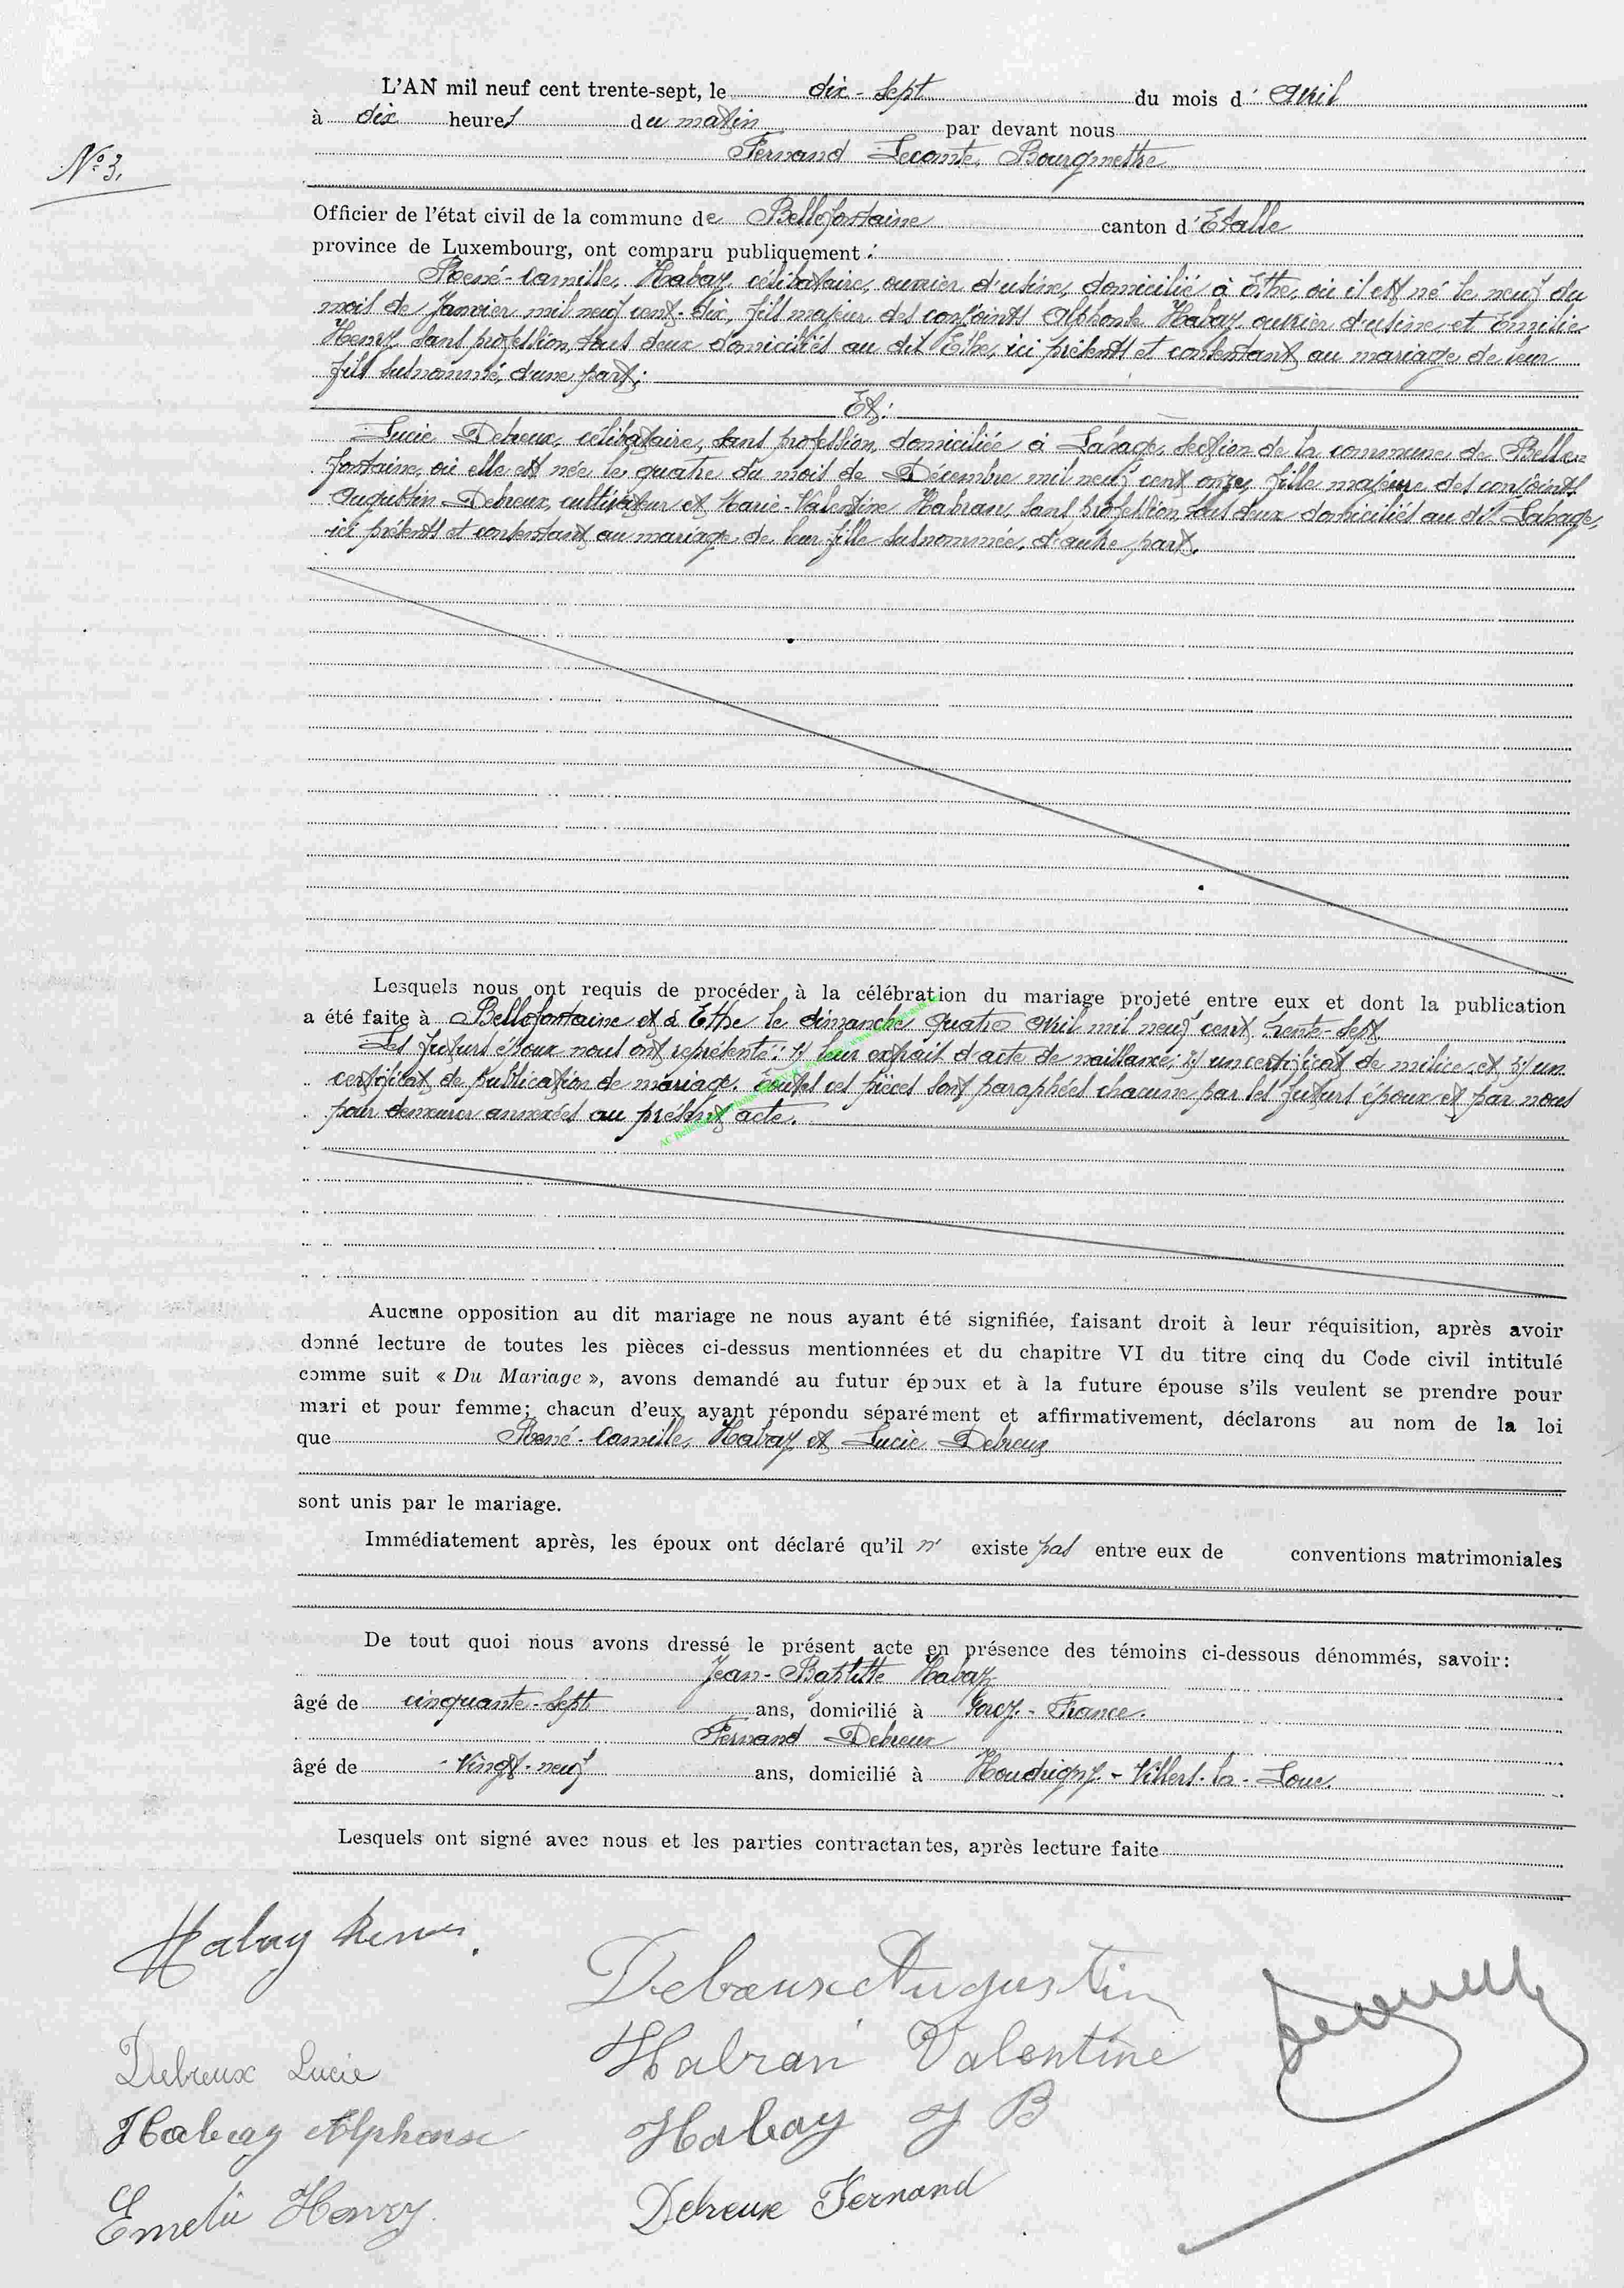 L'AN mil neuf cent trente-sept, le dix-sept du mois d'Avril
à dix heures du matin par devant nous
Fernand Lecomte, Bourgmestre
N° 3.
Officier de l'état civil de la commune de Bellefontaine canton d'Etalle
province de Luxembourg, ont comparu publiquement :
René-Camille, Habay, célibataire, ouvrier d'usine, domicilié à Ethe, où il est né le neuf du
mois de Janvier mil neuf cent-dix, fils majeur des conjoints Alphonse Habay, ouvrier d'usine et Emilie
Henry, sans profession, tous deux domiciliés au dit Ethe, ici présents et consentant au mariage de leur
fils susnommé, d'une part;
Et:
Lucie Debreux, célibataire, sans profession, domiciliée à Lahage, section de la commune de Belle-
fontaine, où elle est née le quatre du mois de Décembre mil neuf cent onze, fille majeure des conjoints
Augustin Debreux, cultivateur et Marie-Valentine Habran, sans profession, tous deux domiciliés au dit Lahage,
ici présents et consentant au mariage de leur fille susnommée, d'autre part.
Lesquels nous ont requis de procéder à la célébration du mariage projeté entre eux et dont la publication
a été faite à Bellefontaine et à Ethe le dimanche quatre Avril mil neuf cent trente-sept
Les futurs époux nous ont représenté: 1) leur extrait d'acte de naissance; 2) un certificat de milice et 3) un
certificat de publication de mariage. Toutes ces pièces sont paraphées chacune par les futurs époux et par nous
pour demeurer annexées au présent acte.
Aucune opposition au dit mariage ne nous ayant été signifiée, faisant droit à leur réquisition, après avoir
donné lecture de toutes les pièces ci-dessus mentionnées et du chapitre VI du titre cinq du Code civil intitulé
comme suit « Du Mariage », avons demandé au futur époux et à la future épouse s'ils veulent se prendre pour
mari et pour femme; chacun d'eux ayant répondu séparément et affirmativement, déclarons au nom de la loi
que René-Camille, Habay et Lucie Debreux
sont unis par le mariage.
Immédiatement après, les époux ont déclaré qu'il n' existe pas entre eux de conventions matrimoniales
De tout quoi nous avons dressé le présent acte en présence des témoins ci-dessous dénommés, savoir:
Jean-Baptiste Habay
âgé de cinquante-sept ans, domicilié à Gorcy-France.
Fernand Debreux
âgé de Vingt-neuf ans, domicilié à Houdrigny-Villers-la-Loue.
Lesquels ont signé avec nous et les parties contractantes, après lecture faite
Habay René
Debreux Augustin
Debreux Lucie
Habran Valentine
Habay Alphonse
Habay J B
Emelie Henry
Debreux Fernand